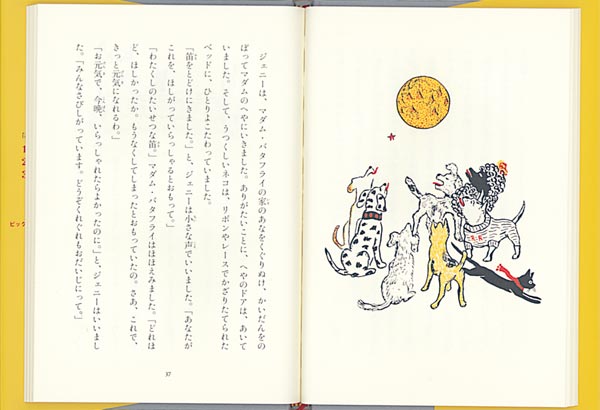 ジェニーは、マダム・バタフライの家のあなをくぐりぬけ、かいだんをの
ぼってマダムのへやにいきました。ありがたいことに、へやのドアは、あいて
いました。そして、うつくしいネコは、リボンやレースでかざりたてられた
ベッドに、ひとりよこたわっていました。
「笛をとどけにきました。」と、ジェニーは小さな声でいいました。「あなたが
これを、ほしがっていらっしゃるとおもって。」
「わたくしのたいせつな笛。」マダム・バタフライはほほえみました。「どれほ
ど、ほしかったか。もうなくしてしまったとおもっていたの。さあ、これで、
きっと元気になれるわ。」
「お元気で、今晩、いらっしゃれたらよかったのに。」と、ジェニーはいいまし
た。「みんなさびしがっています。どうぞくれぐれもおだいじにって。」
37